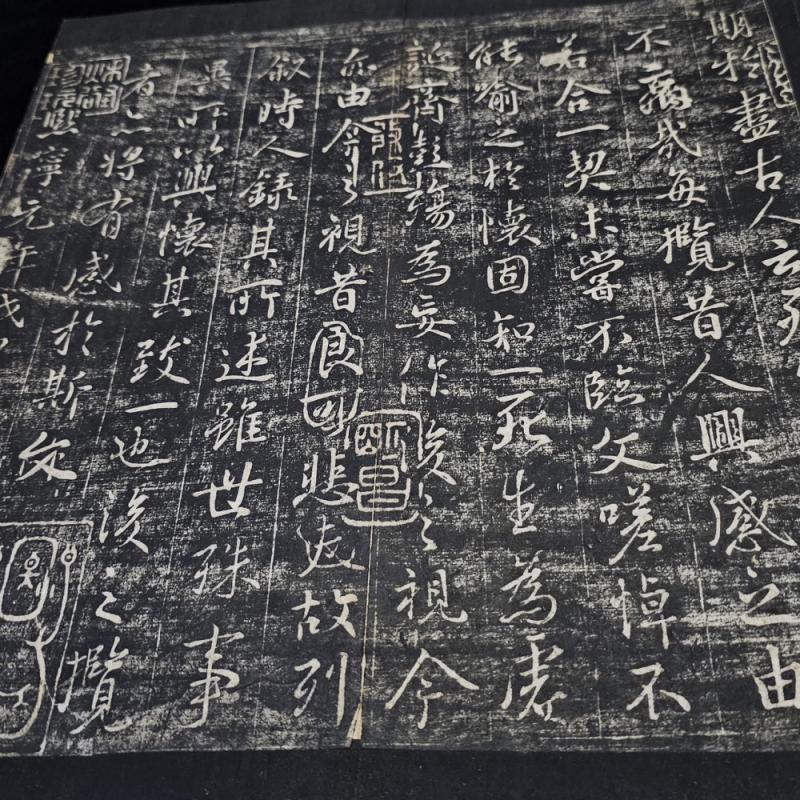 期於盡古人云死
不痛哉每攬昔人興感之由
若合一契未嘗不臨文嗟悼不
能喻之於懷固知一死生為虛
誕齊彭殤為妄作後之視今
亦由今之視昔良可悲夫故列
敘時人錄其所述雖世殊事
異所以興懷其致一也後之攬
者亦將有感於斯文
熙寧元年戊
明昌